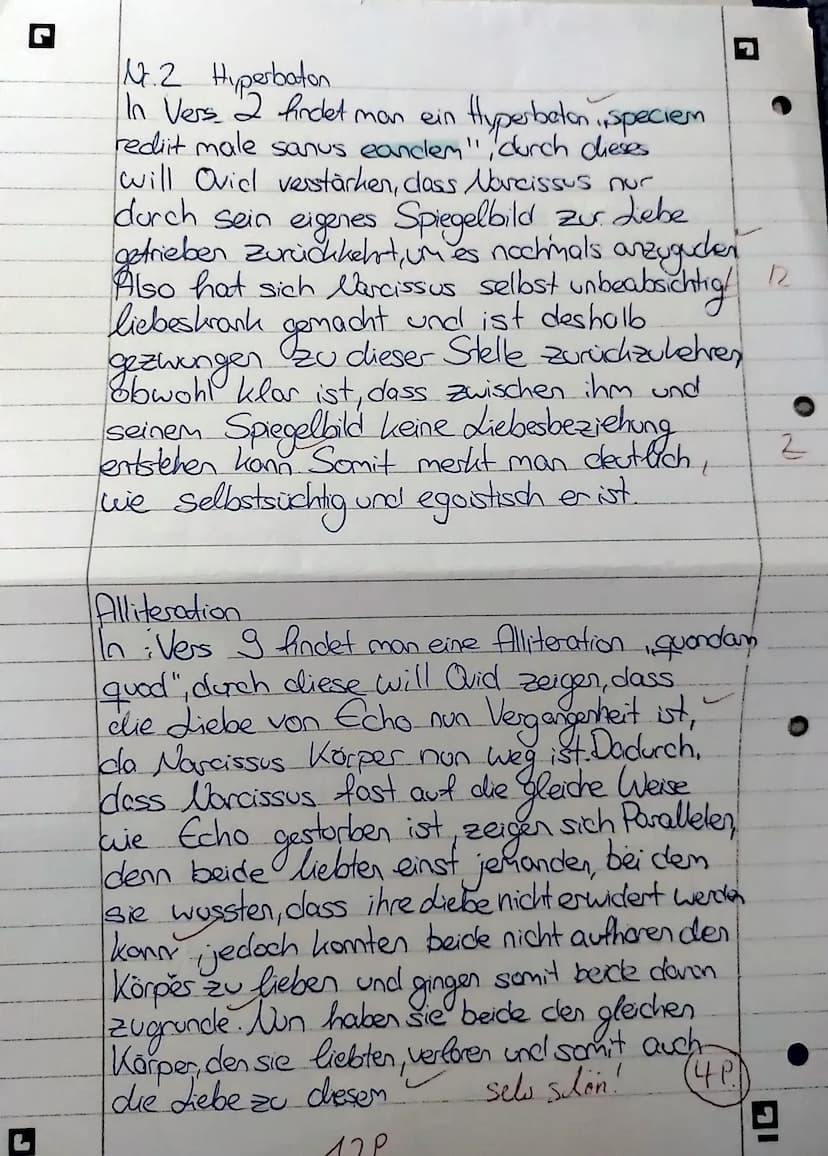 Nr.2 Hyperbaton
In Vers 2 findet man ein Hyperbaton „speciem
rediit male sanus eandem", durch dieses
will Ovid verstärken, dass Narcissus nur
durch sein eigenes Spiegelbild zur Liebe
getrieben zurückkehrt, um es nochmals anzugucken
Also hat sich Narcissus selbst unbeabsichtigt
liebeskrank gemacht und ist deshalb
gezwungen zu dieser Stelle zurückzukehren,
obwohl klar ist, dass zwischen ihm und
seinem Spiegelbild keine Liebesbeziehung
2
entstehen kann. Somit merkt man deutlich,
wie selbstsüchtig und egoistisch er ist.
Alliteration
In Vers 9 findet man eine Alliteration „quondam
quod", durch diese will Ovid zeigen, dass
die Liebe von Echo nun Vergangenheit ist,
da Narcissus Körper nun weg ist. Dadurch,
dass Narcissus fast auf die gleiche Weise
wie Echo gestorben ist, zeigen sich Parallelen,
denn beide liebten einst jemanden, bei dem
sie wussten, dass ihre Liebe nicht erwidert werden
kann, jedoch konnten beide nicht aufhören den
Körper zu lieben und gingen somit beide daran
zugrunde. Nun haben sie beide den gleichen
Körper, den sie liebten, verloren und somit auch
die Liebe zu diesem
sehr schön!
4 P.
12 P